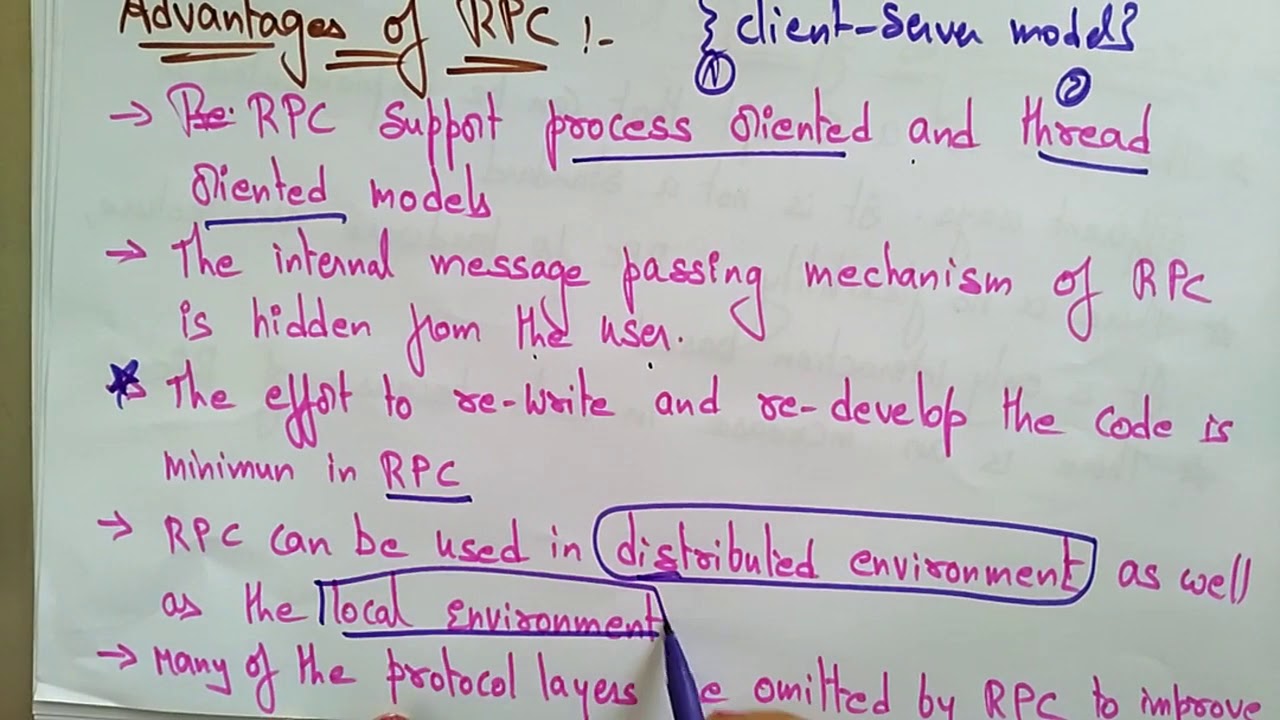 Advantages of RPC :- { client-server model}
① ②
→ RPC support process oriented and thread
oriented models
→ The internal message passing mechanism of RPC
is hidden from the user.
* The effort to re-write and re-develop the code is
minimun in RPC
→ RPC can be used in distributed environment as well
as the local environment
→ Many of the protocol layers omitted by RPC to improve